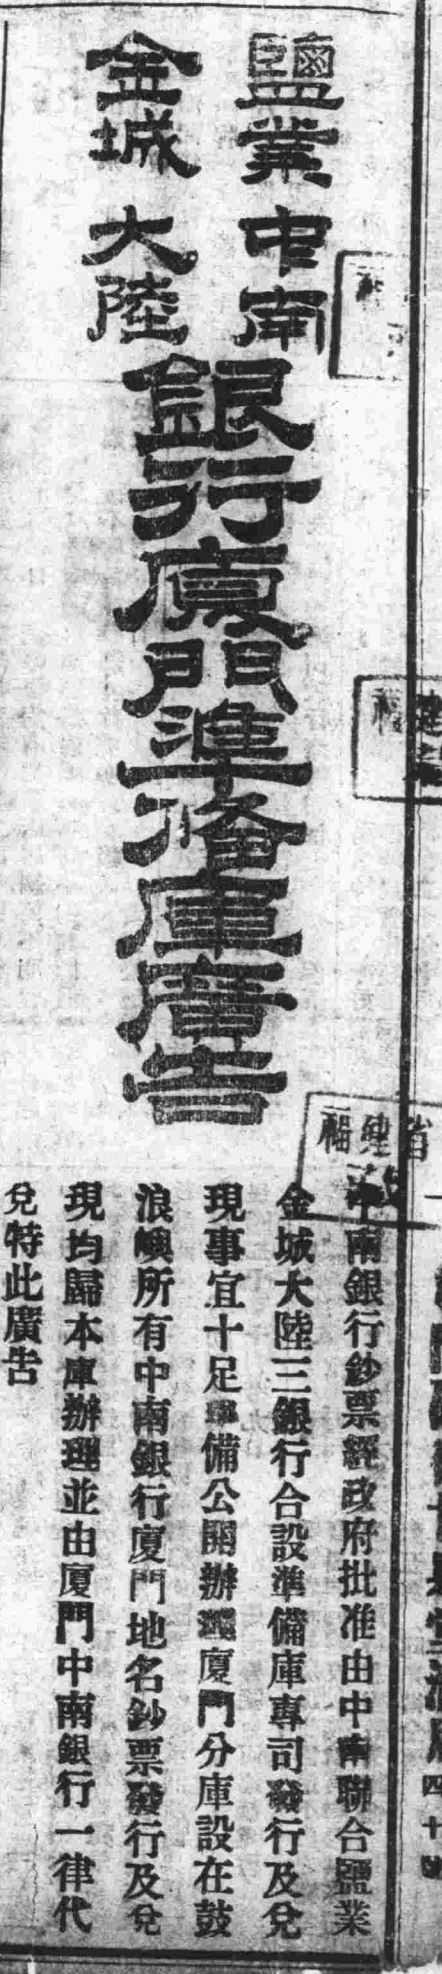 鹽業 中南
金城 大陸
銀行廈門準備庫廣告
中南銀行鈔票經政府批准由中南聯合鹽業
金城大陸三銀行合設準備庫專司發行及兌
現事宜十足準備公開辦理廈門分庫設在鼓
浪嶼所有中南銀行廈門地名鈔票發行及兌
現均歸本庫辦理並由廈門中南銀行一律代
兌特此廣告
福
福建
福建省
四十